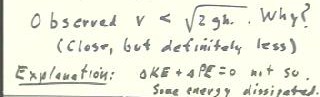 Observed v < √2gh. Why?
(Close, but definitely less)
Explanation: ΔKE + ΔPE = 0 not so.
Some energy dissipated.